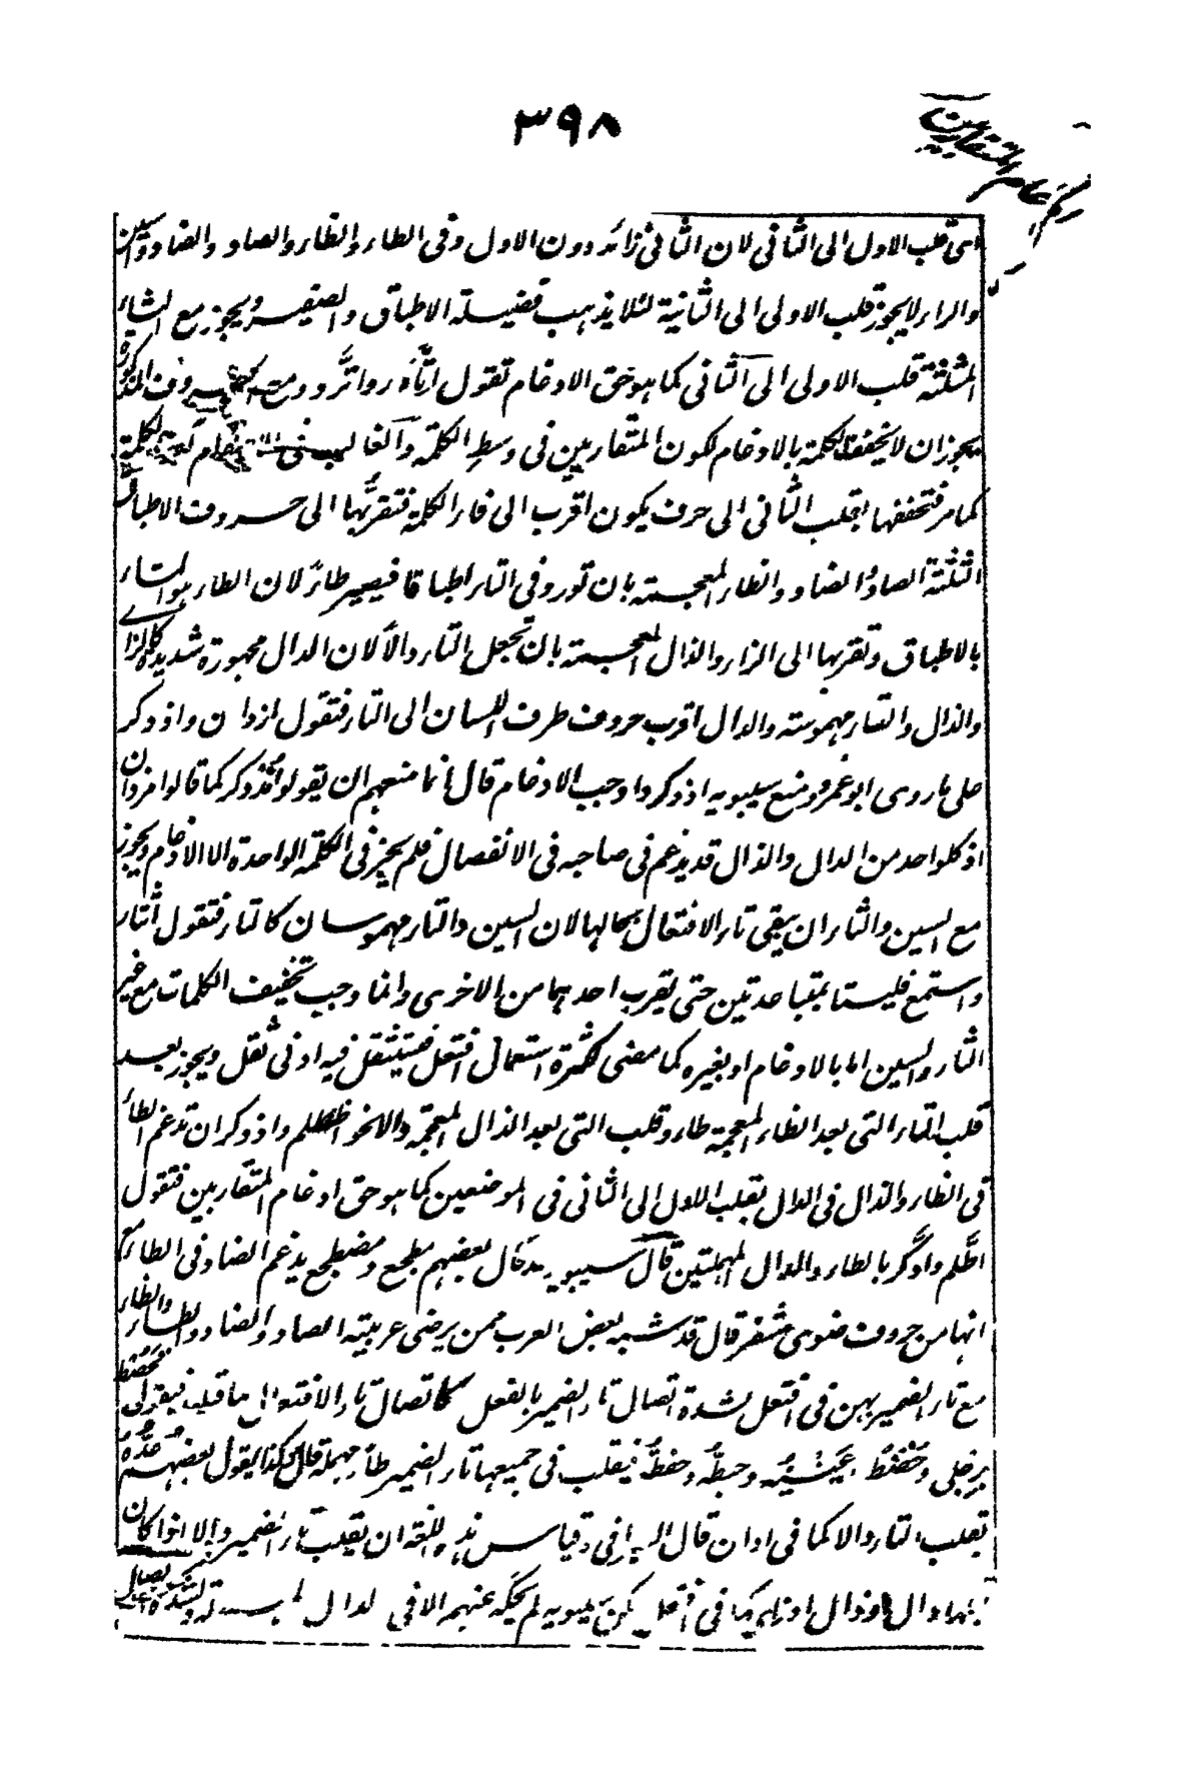 ٣٩٨
ادغام المتقاربين
اى قلب الاول الى الثانى لان الثانى زائد دون الاول وفى الطاء والظاء والصاد والضاد والسين
والراء لا يجوز قلب الاولى الى الثانية لئلا يذهب فضيلة الاطباق والصفير ويجوز مع الثاء
المثلثة قلب الاولى الى الثانى كما هو حق الادغام تقول اتّأر واتّرد ومع الحروف المذكورة
يجوز ان لا يخفف الكلمة بالادغام لكون المتقاربين فى وسط الكلمة والغالب الكلمة
كما مر فتخففها بقلب الثانى الى حرف يكون اقرب الى فاء الكلمة فتقربها الى حروف الاطباق
الثلثة الصاد والضاد والظاء المعجمة بان تورد فى التاء اطباقا فيصير طاءً لان الطاء هو التاء
بالاطباق وتقربها الى الزاء والذال المعجمة بان تجعل التاء دالا لان الدال مجهورة شديدة كالزاى
والذال والتاء مهموسة والدال اقرب حروف طرف اللسان الى التاء فتقول ازدان واذدكر
على ما روى ابو عمرو ومنع سيبويه اذدكر واوجب الادغام قال انما منعهم ان يقولوا مذدكر كما قالوا مزدان
اذ كل واحد من الدال والذال قد يدغم فى صاحبه فى الانفصال فلم يجز فى الكلمة الواحدة الا الادغام ويجوز
مع السين والثاء ان يبقى تاء الافتعال بحالها لان السين والثاء مهموسان كالتاء فتقول اثتار
واستمع فليستا بمتباعدتين حتى يقرب احدهما من الاخرى وانما وجب تخفيف الكلمات مع غير
الثاء والسين اما بالادغام او بغيره كما مضى لكثرة استعمال افتعل فيستثقل فيه ادنى ثقل ويجوز بعد
قلب التاء التى بعد الظاء المعجمة طاء وقلب التى بعد الذال المعجمة دالا نحو اظطلم واذدكر ان تدغم الظاء
فى الطاء والذال فى الدال بقلب الاول الى الثانى فى الموضعين كما هو حق ادغام المتقاربين فتقول
اطّلم وادّكر بالطاء والدال المهملتين قال سيبويه قد قال بعضهم مطجع فى مضطجع يدغم الضاد فى الطاء مع
انها من حروف ضوى مشفر قال قد شبه بعض العرب ممن يرضى عربيته الصاد والضاد والطاء والظاء
مع تاء الضمير بهن فى افتعل لشدة اتصال تاء الضمير بالفعل كاتصال تاء الافتعال بما قبلها فيقول فحصط
برجلى وحفظط وحبطّه وحفطّ فيقلب فى جميعها تاء الضمير طاء مهملة قال وكذا يقول بعضهم عدّه
بقلب التاء دالا كما فى ادان قال السيرافى وقياس هذه اللغة ان يقلب تاء الضمير دالا اذا كان
قبلها دال او ذال او زاء كما فى افتعل لكن سيبويه لم يحكه عنهم الا فى الدال